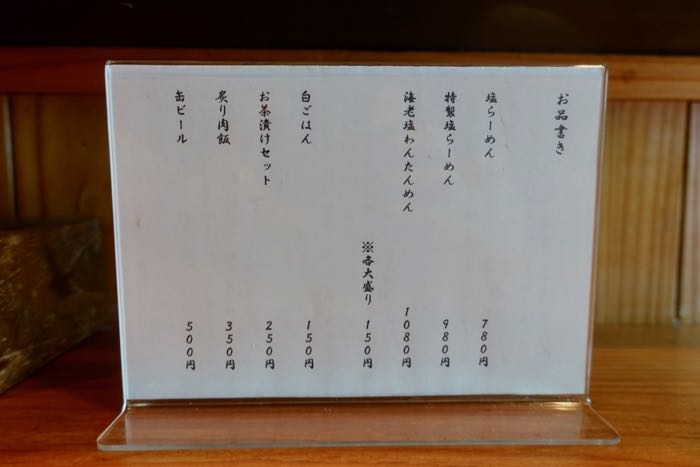 お品書き
塩らーめん 780円
特製塩らーめん 980円
海老塩わんたんめん 1080円
※各大盛り 150円
白ごはん 150円
お茶漬けセット 250円
炙り肉飯 350円
缶ビール 500円